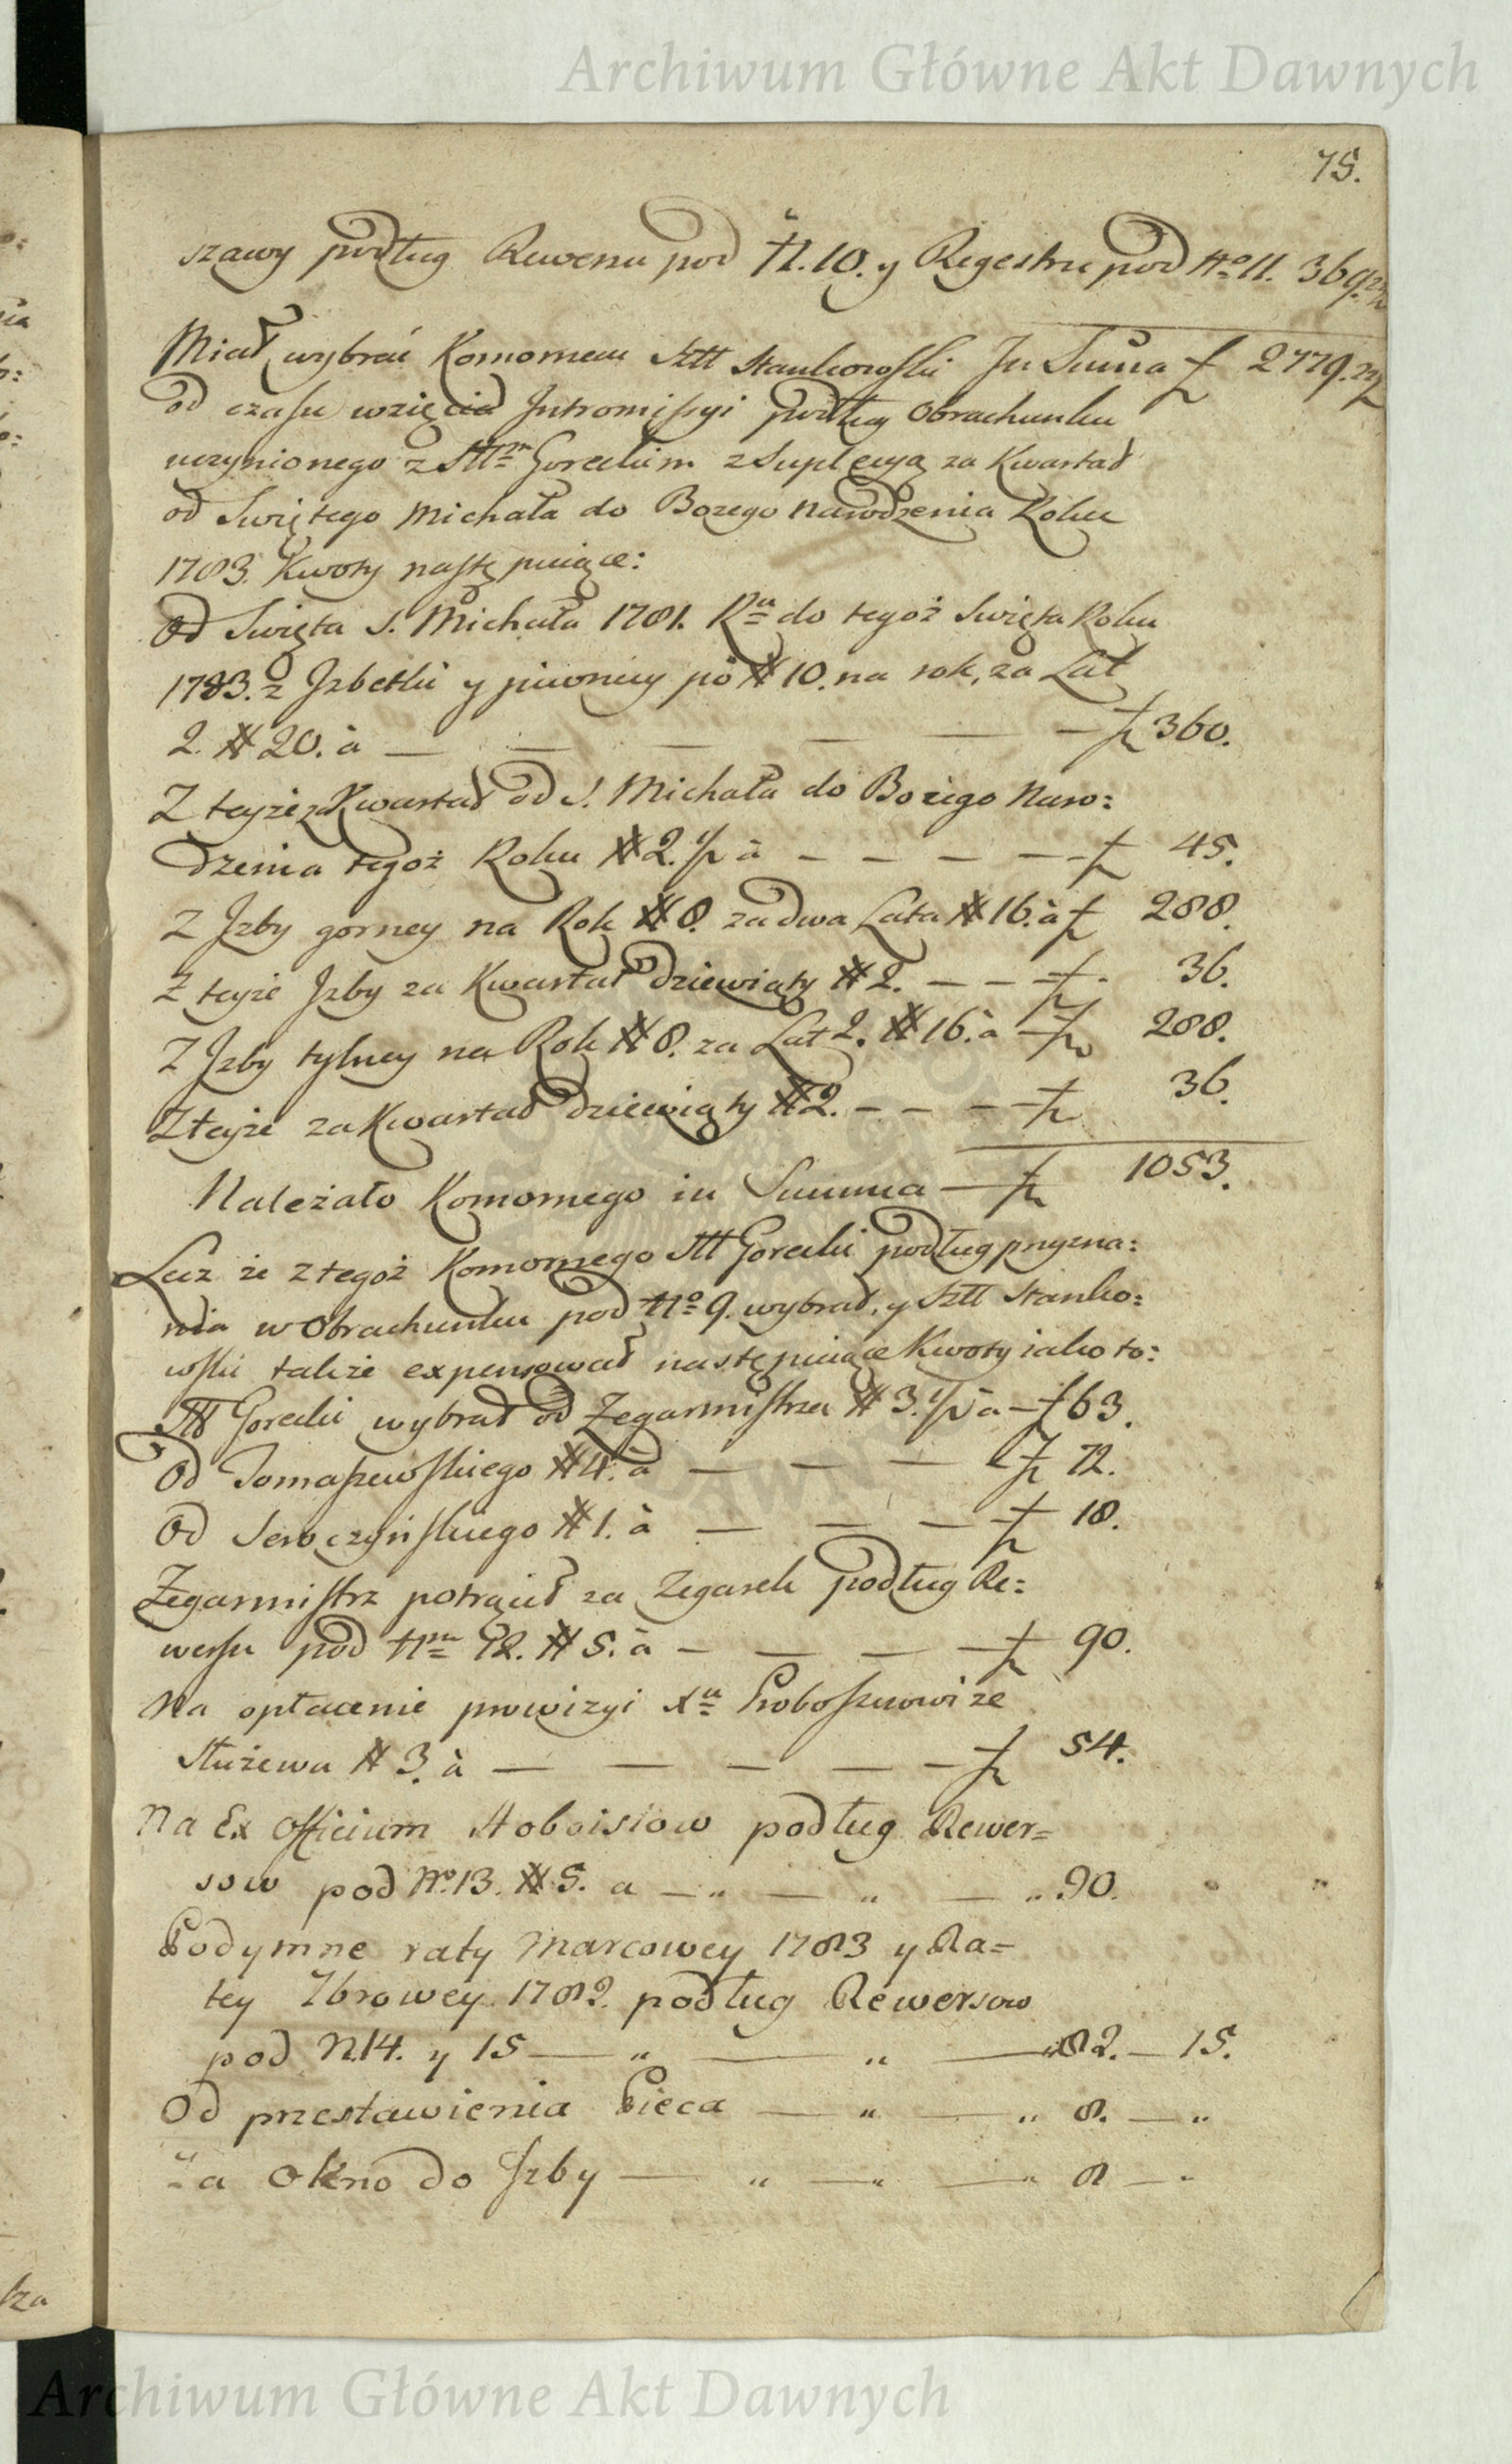 Archiwum Główne Akt Dawnych
75.
szawy podług Rewersu pod N. 10. y Regestru pod No 11. 369.
Miał wybrać Komornem Sztt Stankowski In Suma f 2779.
od czasu wzięcia Intromissyi podług Obrachunku
uczynionego z Stt Goreckim z Suplecyą za Kwartał
od Swiętego Michała do Bozego Narodzenia Roku
1783. Kwoty następuiące:
Od Swięta S. Michała 1781. Ru do tegoż Swięta Roku
1783. z Jzbetki y piwnicy po # 10. na rok, za Lat
2. # 20. à — — — — — — f 360.
Z teyże za Kwartał od S. Michała do Bożego Naro:
dzenia tegoż Roku # 2. 1/2 à — — — — f 45.
Z Jzby gorney na Rok # 8. za dwa Lata # 16. à f 288.
Z teyże Jzby za Kwartał dziewiąty # 2. — — f 36.
Z Jzby tylney na Rok # 8. za Lat 2. # 16. à — f 288.
Z teyże za Kwartał dziewiąty # 2. — — — f 36.
Należało Komornego in Summa — f 1053.
Lecz że z tegoż Komornego Stt Gorecki podług przyzna:
nia w Obrachunku pod No 9. wybrał, y Sztt Stanko:
wski także expensował następuiące Kwoty iako to:
Stt Gorecki wybrał od Zegarmistrza # 3. 1/2 à — f 63.
Od Tomaszewskiego # 4. à — — — f 72.
Od Seroczyńskiego # 1. à — — — f 18.
Zegarmistrz potrącił za Zegarek podług Re:
wersu pod Nm 12. # 5. à — — — — f 90.
Na opłacenie prowizyi Xu Proboszczowi ze
Służewa # 3. à — — — — — f 54.
Na Ex Officium Hoboistow podług Rewer=
sow pod No. 13. # 5. a — „ — „ — „ 90.
Podymne raty Marcowey 1783 y Ra=
tey 7browey 1782. podług Rewersow
pod N. 14. y 15 — „ — „ — „ 82. — 15.
Od przestawienia Pieca — „ — „ 8. — „
Za Okno do Jzby — „ — „ — „ 8 — „
Archiwum Główne Akt Dawnych